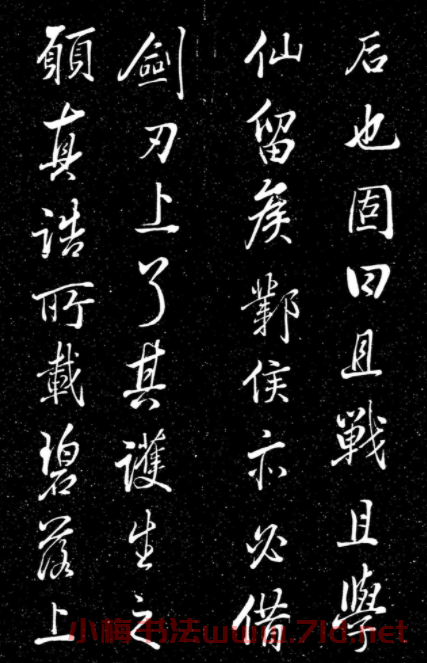 后也固曰且戰且學
仙留矦鄴侯亦必借
劍刃上了其護生之
願真誥所載碧落上
小梅书法www.7ld.net